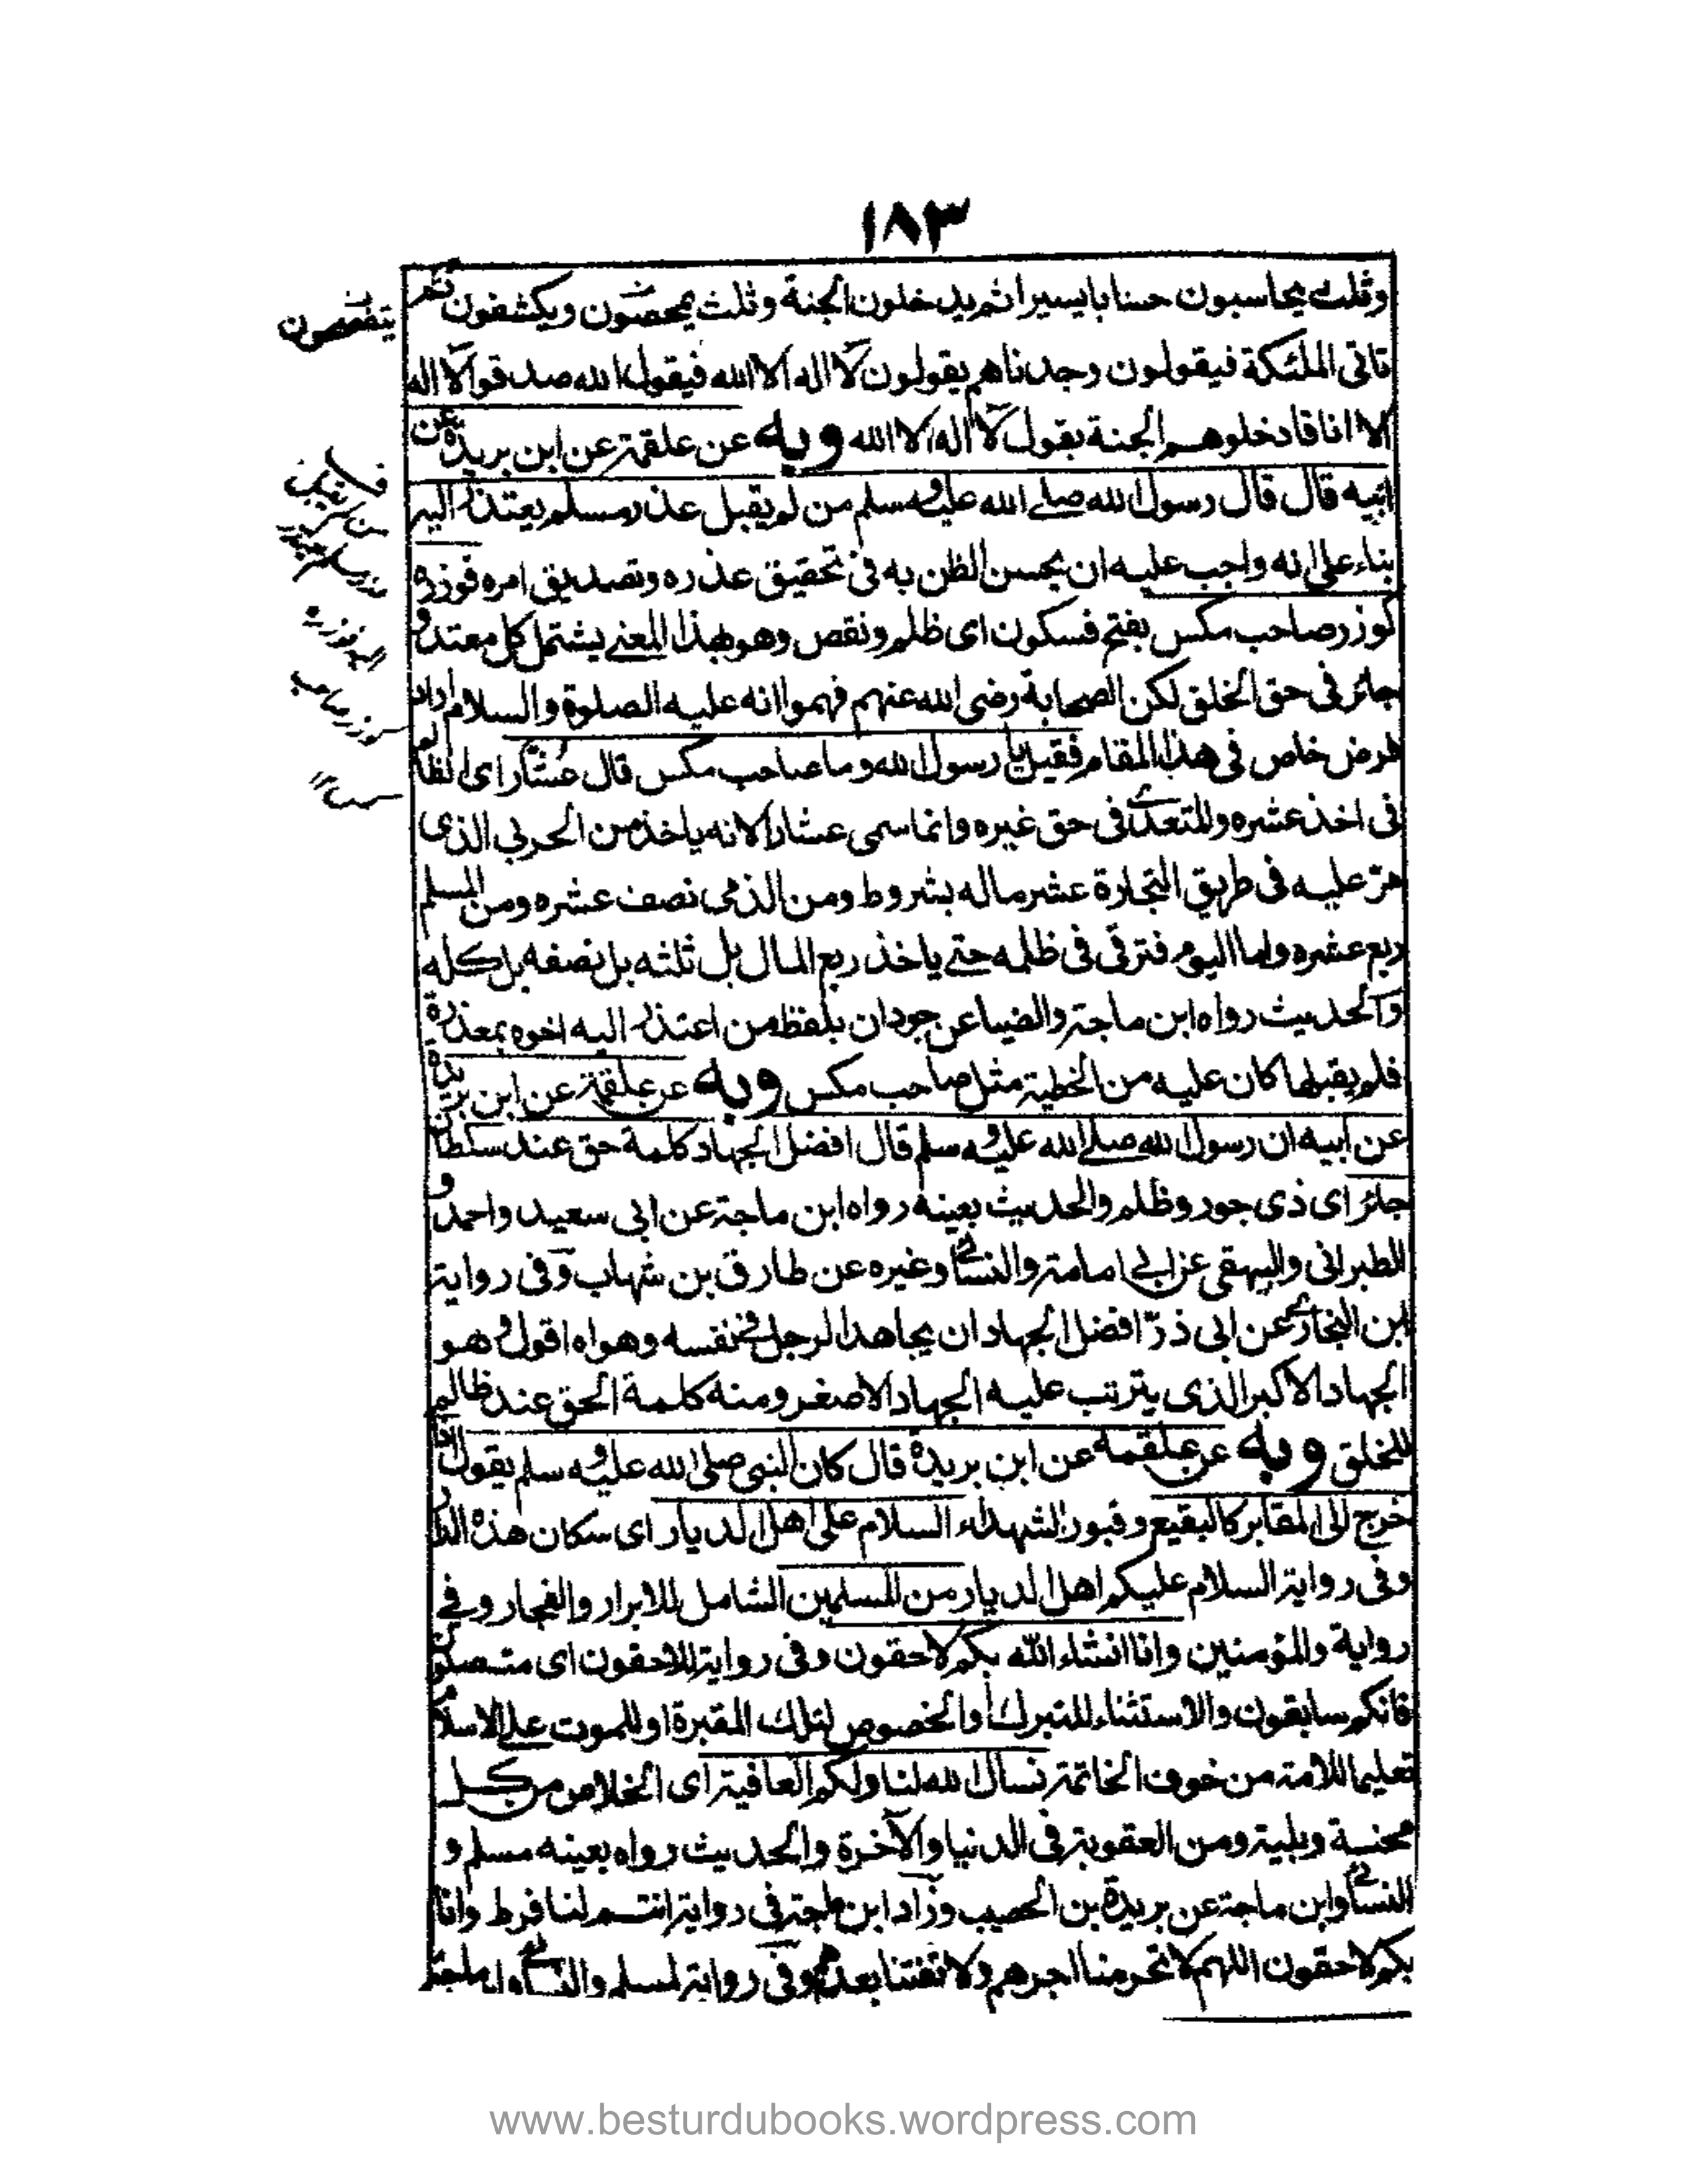 ١٨٣
وثلث يحاسبون حسابا يسيرا ثم يدخلون الجنة وثلث يمحصون ويكشفون ثم
تاتى الملئكة فيقولون وجدناهم يقولون لا اله الا الله فيقول الله صدقوا لا اله
الا انا فادخلوهم الجنة بقول لا اله الا الله وبه عن علقمة عن ابن بريدة عن
ابيه قال قال رسول الله صلى الله عليه وسلم من لم يقبل عذر مسلم يعتذر اليه
بناء على انه واجب عليه ان يحسن الظن به فى تحقيق عذره وتصديق امره فوزره
كوزر صاحب مكس بفتح فسكون اى ظلم ونقص وهو بهذا المعنى يشتمل كل معتد و
جائر فى حق الخلق لكن الصحابة رضى الله عنهم فهموا انه عليه الصلوة والسلام اراد
فرض خاص فى هذا المقام فقيل يا رسول الله وما صاحب مكس قال عشار اى الظالم
فى اخذ عشره والمتعدى فى حق غيره وانما سمى عشارا لانه ياخذ من الحربى الذى
مر عليه فى طريق التجارة عشر ماله بشروط ومن الذمى نصف عشره ومن المسلم
ربع عشره واما اليوم فترقى فى ظلمه حتى ياخذ ربع المال بل ثلثه بل نصفه بل كله
والحديث رواه ابن ماجة والضيا عن جودان بلفظ من اعتذر اليه اخوه بمعذرة
فلم يقبلها كان عليه من الخطية مثل صاحب مكس وبه عن علقمة عن ابن بريدة
عن ابيه ان رسول الله صلى الله عليه وسلم قال افضل الجهاد كلمة حق عند سلطان
جائر اى ذى جور وظلم والحديث بعينه رواه ابن ماجة عن ابى سعيد واحمد و
الطبرانى والبيهقى عن ابى امامة والنسائى وغيره عن طارق بن شهاب وفى رواية
ابن النجار عن ابى ذر افضل الجهاد ان يجاهد الرجل فى نفسه وهواه اقول وهو
الجهاد الاكبر الذى يترتب عليه الجهاد الاصغر ومنه كلمة الحق عند ظالم
للخلق وبه عن علقمه عن ابن بريدة قال كان النبى صلى الله عليه وسلم يقول اذا
خرج الى المقابر كالبقيع وقبور الشهداء السلام على اهل الديار اى سكان هذه الدار
وفى رواية السلام عليكم اهل الديار من المسلمين الشامل للابرار والفجار وفى
رواية والمؤمنين وانا انشاء الله بكم لاحقون وفى رواية للاحقون اى متصلون
فانكم سابقون والاستثناء للتبرك او الخصوص لتلك المقبرة او للموت على الاسلام
تعليما للامة من خوف الخاتمة نسال الله لنا ولكم العافية اى الخلاص من كل
محنة وبلية ومن العقوبة فى الدنيا والآخرة والحديث رواه بعينه مسلم و
النسائى وابن ماجة عن بريدة بن الحصيب وزاد ابن ماجة فى رواية انتم لنا فرط وانا
بكم لاحقون اللهم لا تحرمنا اجرهم ولا تفتنا بعدهم وفى رواية لمسلم والنسائى وابن ماجة
www.besturdubooks.wordpress.com